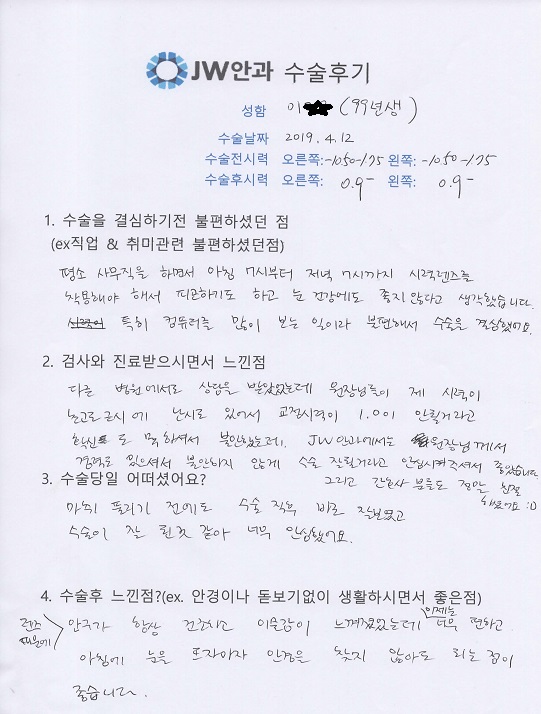 JW안과 수술후기
성함 이 (99년생)
수술날짜 2019. 4. 12
수술전시력 오른쪽: -10.50 -1.75 왼쪽: -10.50 -1.75
수술후시력 오른쪽: 0.9- 왼쪽: 0.9-
1. 수술을 결심하기전 불편하셨던 점
(ex직업 & 취미관련 불편하셨던점)
평소 사무직을 하면서 아침 7시부터 저녁 7시까지 시력렌즈를
착용해야 해서 피곤하기도 하고 눈 건강에도 좋지 않다고 생각했습니다.
특히 컴퓨터를 많이 보는 일이라 불편해서 수술을 결심했어요.
2. 검사와 진료받으시면서 느낀점
다른 병원에서도 상담을 받았었는데 원장님들이 제 시력이
초고도근시에 난시도 있어서 교정시력이 1.0이 안될거라고
확신도 못하셔서 불안했는데, JW안과에서는 원장님께서
경력도 있으셔서 불안하지 않게 수술 잘될거라고 안심시켜주셔서 좋았습니다
그리고 간호사 분들도 정말 친절
하셨어요 :D
3. 수술당일 어떠셨어요?
마취 풀리기 전에도 수술 직후 바로 잘보였고
수술이 잘 된것 같아 너무 안심했어요.
4. 수술후 느낀점?(ex. 안경이나 돋보기없이 생활하시면서 좋은점)
렌즈 때문에 안구가 항상 건조하고 이물감이 느껴졌었는데 이제는 너무 편하고
아침에 눈을 뜨자마자 안경을 찾지 않아도 되는 점이
좋습니다.